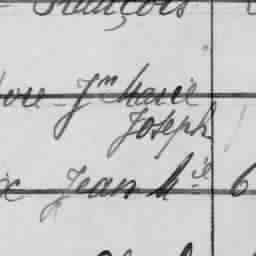 François
Jn Marie
Joseph
Jean Mie 6